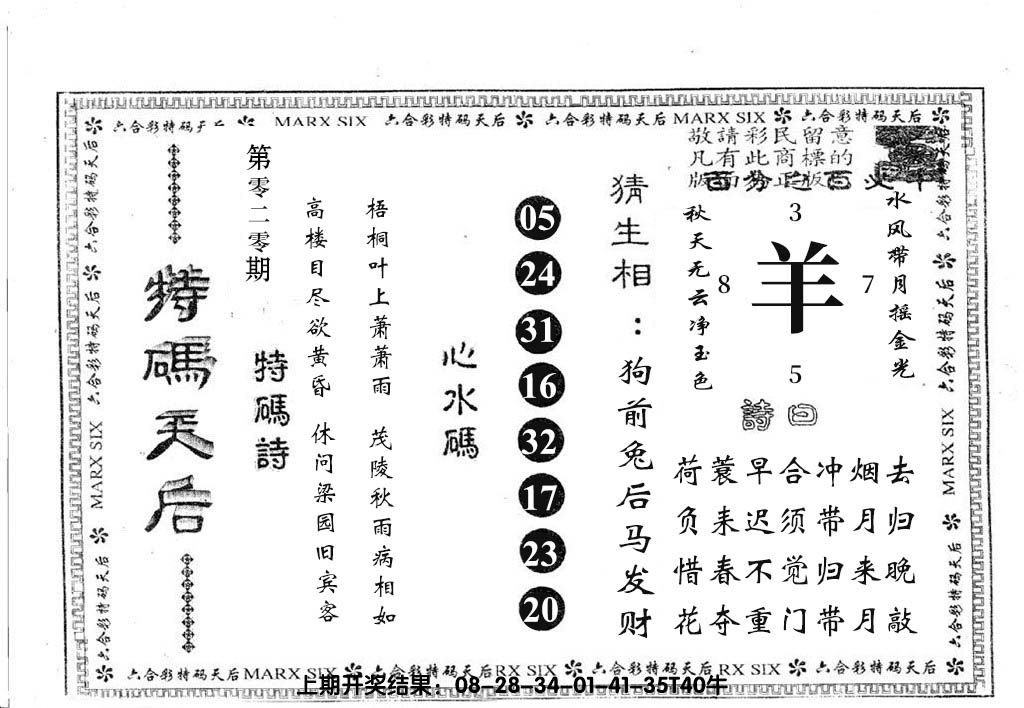 六合彩特码天后 MARX SIX 六合彩特码天后 六合彩特码天后 MARX SIX 六合彩特码天后
敬請彩民留意
凡有此商標的
版面
正版
水风带月摇金光
3
8
羊
7
5
秋天无云净玉色
詩曰
荷蓑早合冲烟去
负耒迟须带月归
惜春不觉归来晚
花夺重门带月敲
猜生相：狗前兔后马发财
05
24
31
16
32
17
23
20
心水碼
梧桐叶上萧萧雨 茂陵秋雨病相如
高楼目尽欲黄昏 休问梁园旧宾客
第零二零期
特碼詩
特碼天后
六合彩特码天后 六合彩特码天后 MARX SIX 六合彩特码天后
六合彩特码天后 六合彩特码天后 MARX SIX 六合彩特码天后
六合彩特码天后 MARX SIX 六合彩特码天后 RX SIX 六合彩特码天后 RX SIX 六合彩特码天后
上期开奖结果：08-28-34-01-41-35T40牛